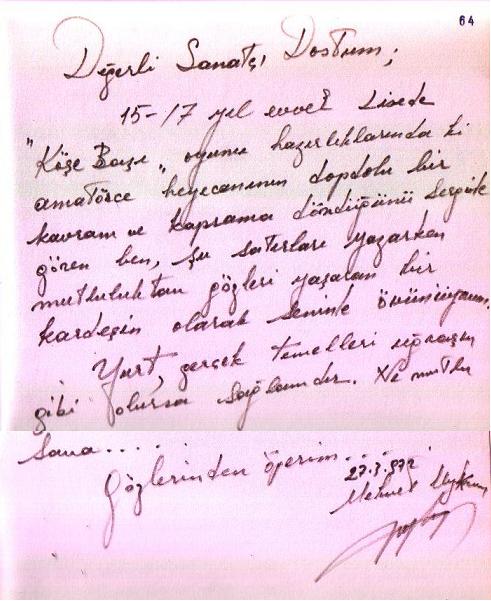 64
Değerli Sanatçı Dostum;
15-17 yıl evvel Lisede
"Köşe Başı" oyunu hazırlıklarında ki
amatörce heyecanının dopdolu bir
kavram ve kaprama döndüğünü
gören ben, şu satırları yazarken
mutluluktan gözleri yaşaran bir
kardeşin olarak seninle övünüyorum.
Yurt, gerçek temelleri uğraşın
gibi olursa sağlamdır. Ne mutlu
Sana....
Gözlerinden öperim....
27.3.972
Mehmet